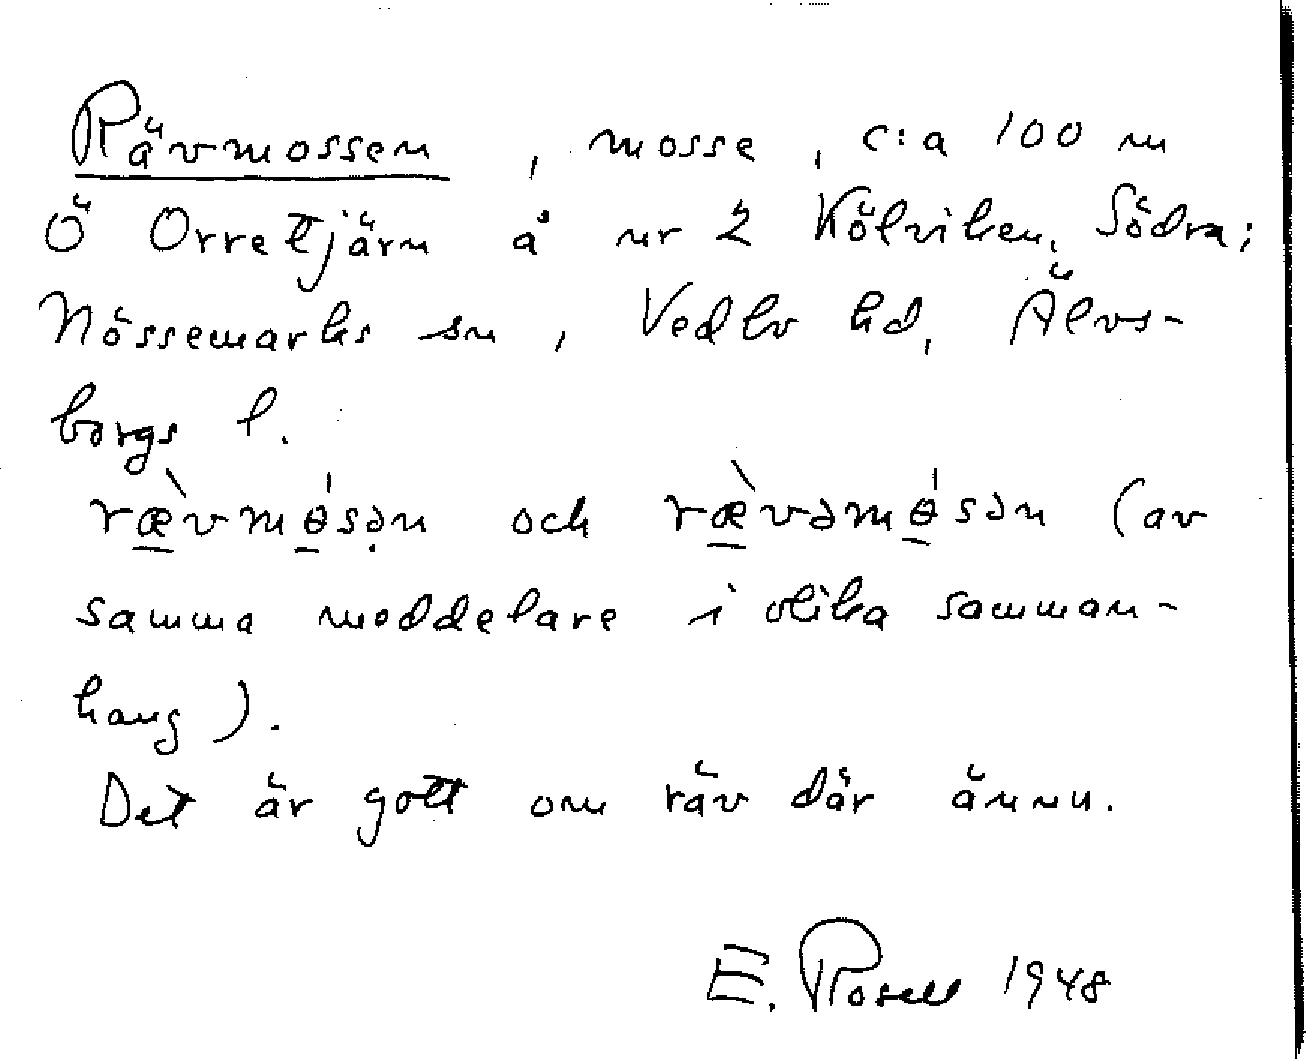 Rävmossen, mosse, c:a 100 m
Ö Orretjärn å nr 2 Kölviken, Södra;
Nössemarks sn, Vedbo hd, Älvs-
borgs l.
ræ̀vmɵ́sə̣n och ræ̀vəmɵ́sən (av
samma meddelare i olika samman-
hang).
Det är gott om räv där ännu.
E. Rosell 1948